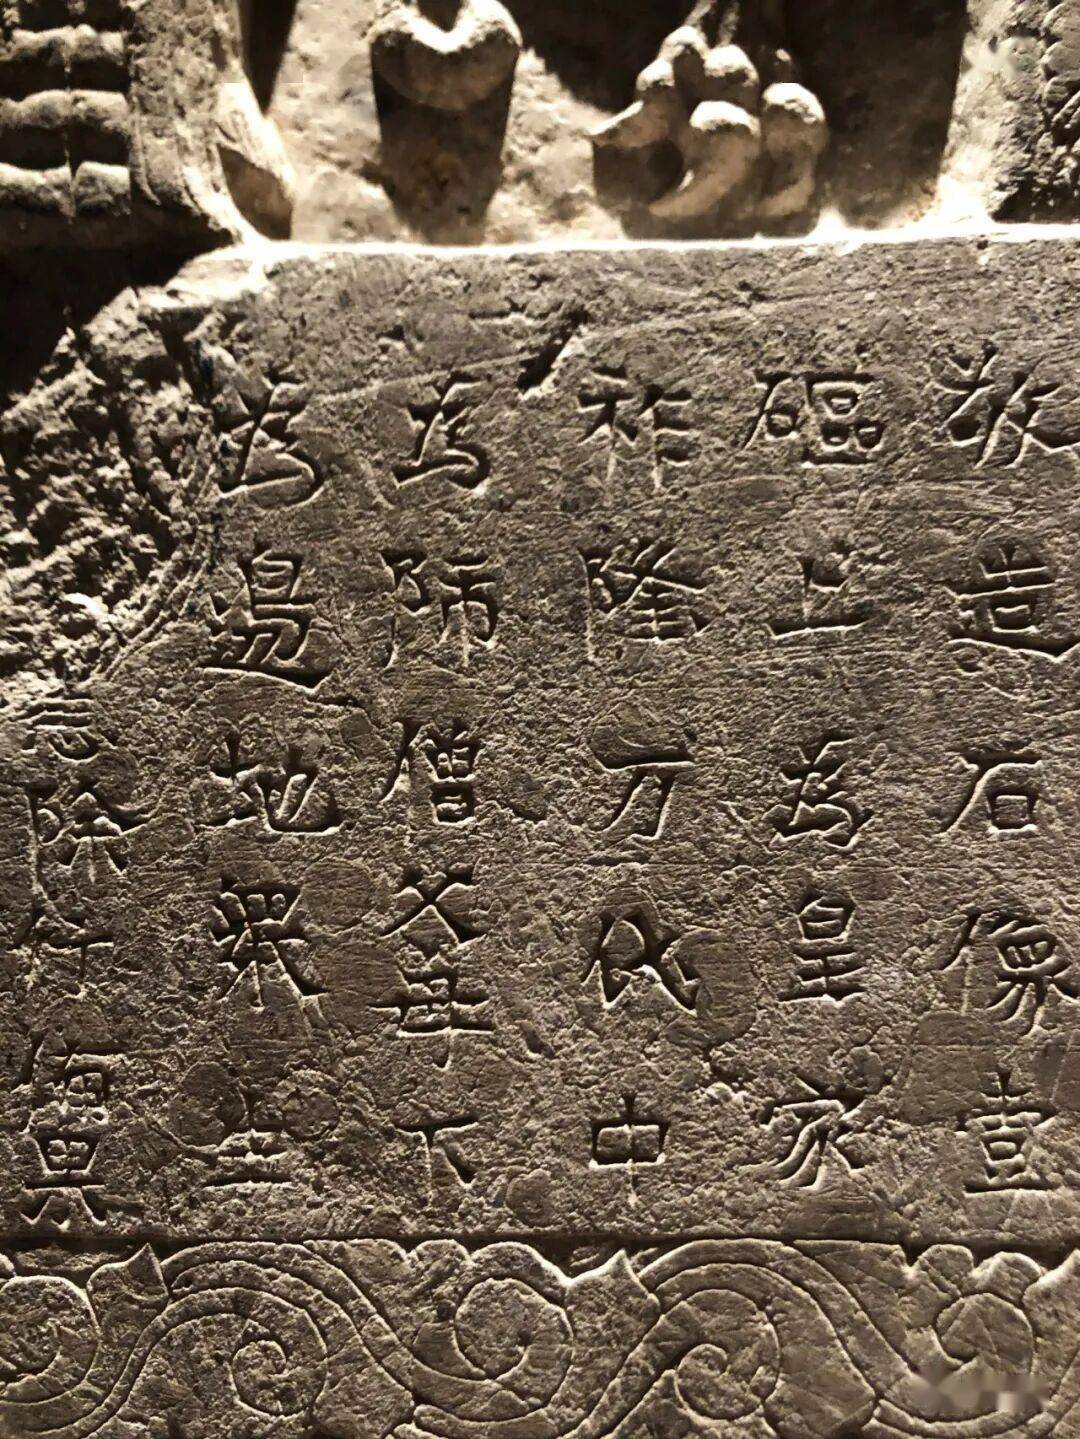 故造石像壹
區上為皇家
祚隆万代中
為師僧父母下
為邊地衆生
除行備果